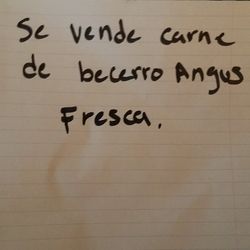 Se vende carne
de becerro Angus
Fresca.